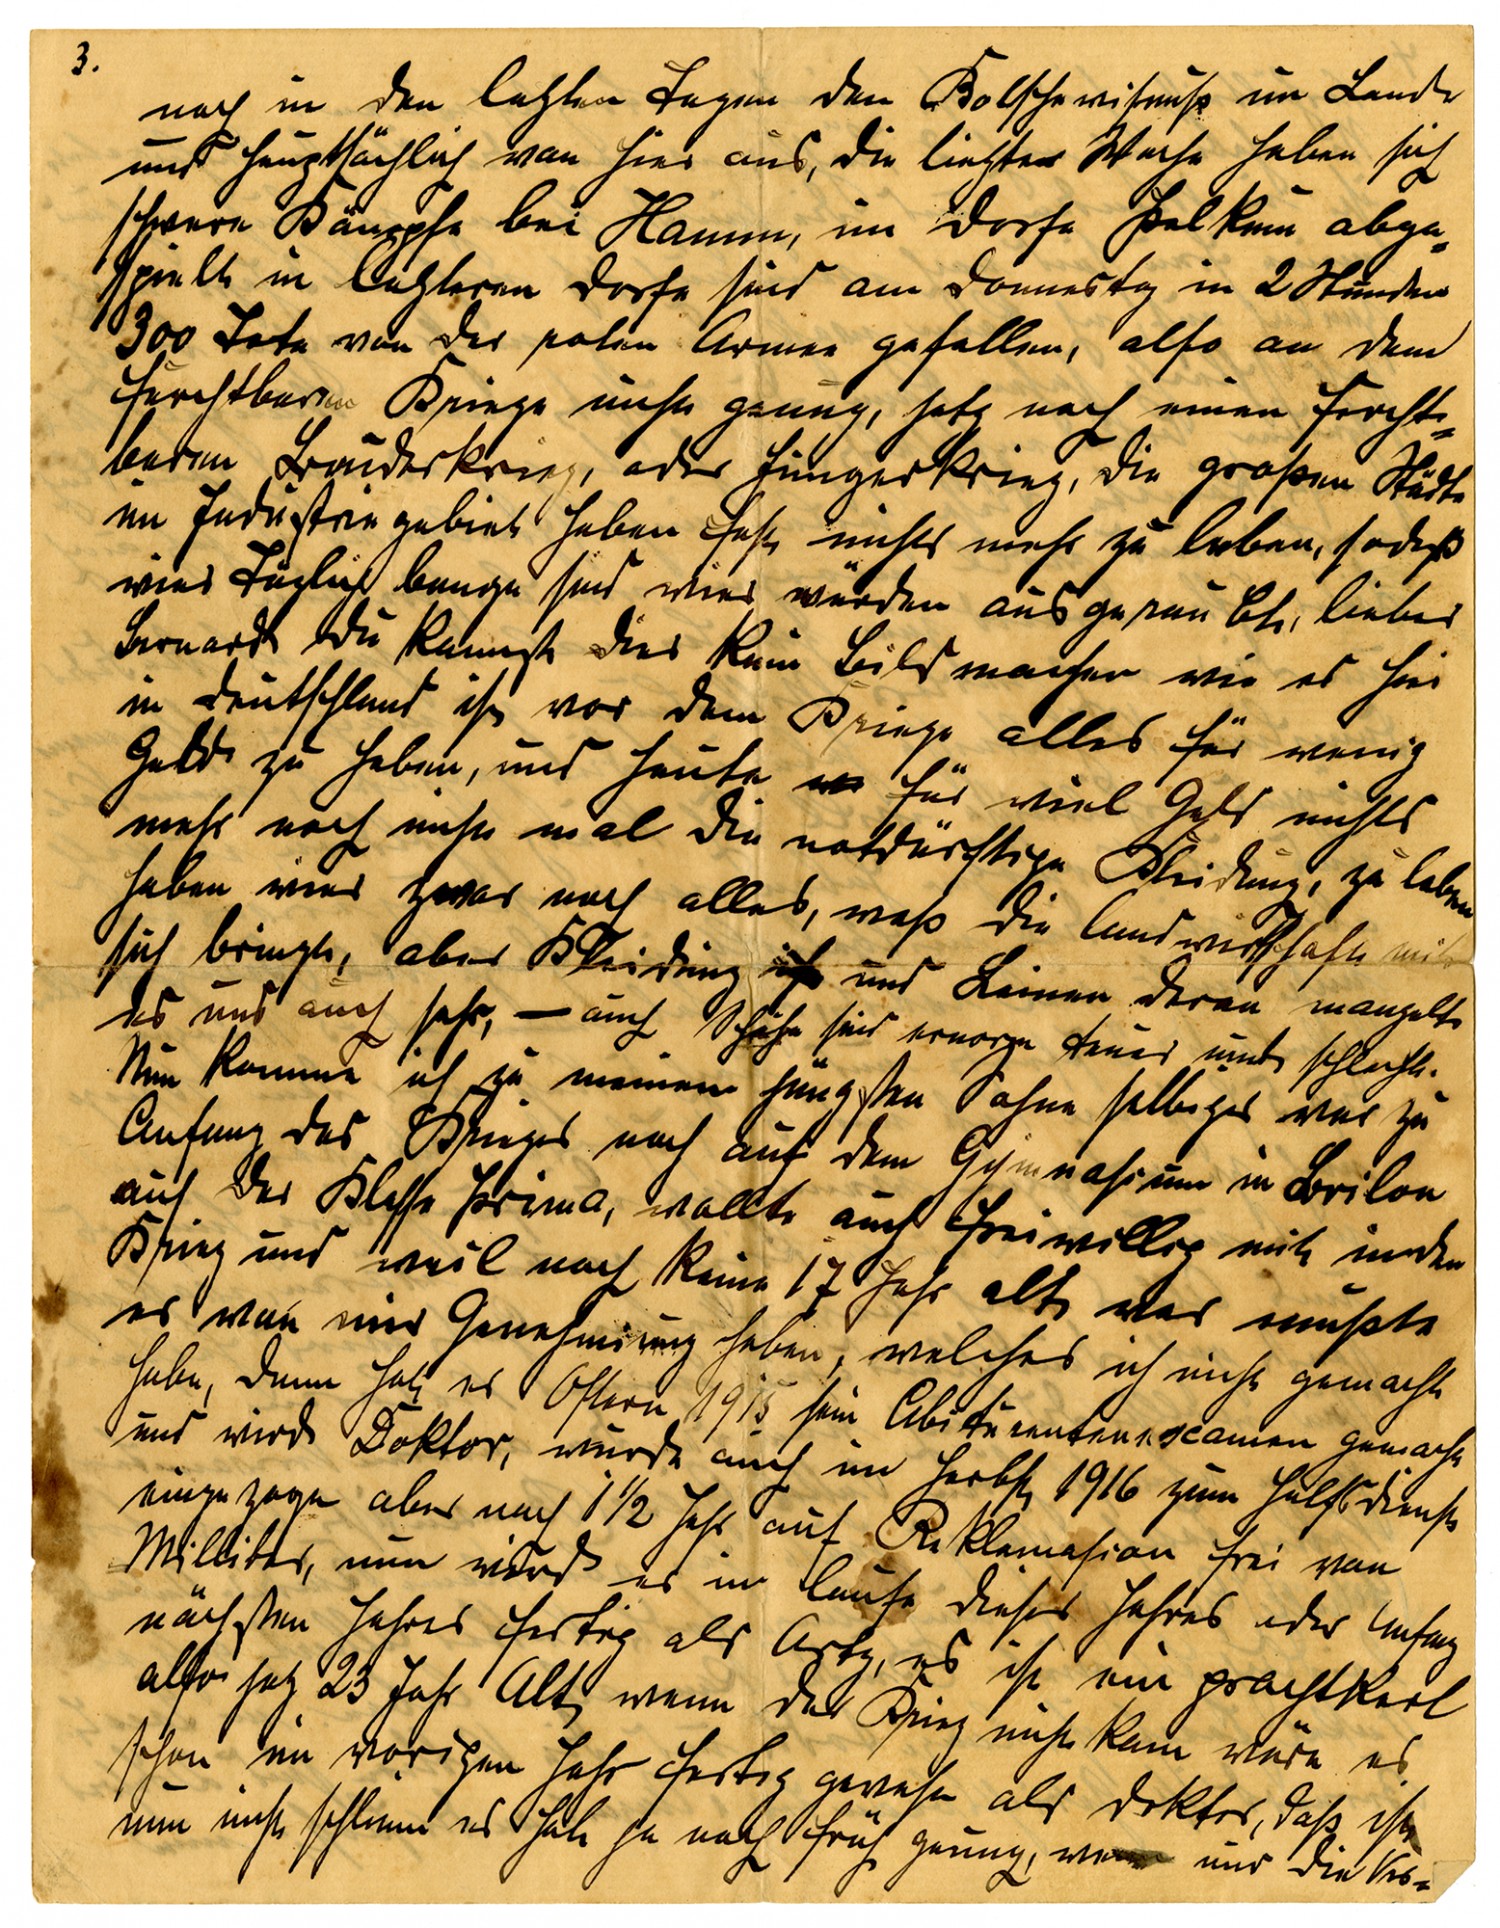 3.
noch in den letzten Tagen den Bolschewismuß im Lande
und hauptsächlich von hier aus, die letzter Woche haben sich
schwere Kämpfe bei Hamm, im Dorfe Pelkum abge=
spielt in letzteren Dorfe sind am Donnestag in 2 Stunden
300 Tote von der roten Armee gefallen, also an dem
furchtbaren Kriege nicht genug, jetz noch einen furcht=
baren Bruderkrieg, oder Hungerkrieg, die großen Städte
im Industriegebiet haben fast nichts mehr zu leben, sodaß
wier täglig bange sind wier würden ausgeraubt, lieber
Bernard Du kannst Dier kein Bild machen wie es hier
in Deutschland ist, vor dem Kriege alles für wenig
Geld zu haben, und heute für viel Geld nichts
mehr noch nicht mal die notdürftige Kleidung, zu leben
haben wier zwar noch alles, waß die Landwirtschaft mit
sich bringt, aber Kleidung und Leinen daran mangelt
es uns auch sehr, — auch Schuhe sind enorm teuer und schlecht.
Nun komme ich zu meinem jüngsten Sohne selbiger war zu
Anfang des Krieges noch auf dem Gymnasium in Brilon
auf der Klasse Prima, wollte auch freiwillig mit in den
Krieg und weil noch keine 17 Jahr alt war mußte
er von mir Genehmigung haben, welches ich nicht gemacht
habe, dann hat er Ostern 1915 sein Abiturentenexamen gemacht
und wird Doktor, wurde auch im Herbst 1916 zum Hülfsdienst
eingezogen aber nach 1 1/2 Jahr auf Reklamasion frei von
Millitär, nun wird er im laufe dieses Jahres oder Anfang
nächsten Jahres fertig als Artz, es ist ein prachtkerl
also jetz 23 Jahr Alt, wenn der Krieg nicht kam wäre er
schon im vorigen Jahr fertig gewesen als Doktor, daß ist
nun nicht schlimm er hat ja noch früh genug, wenn nur die Ver=